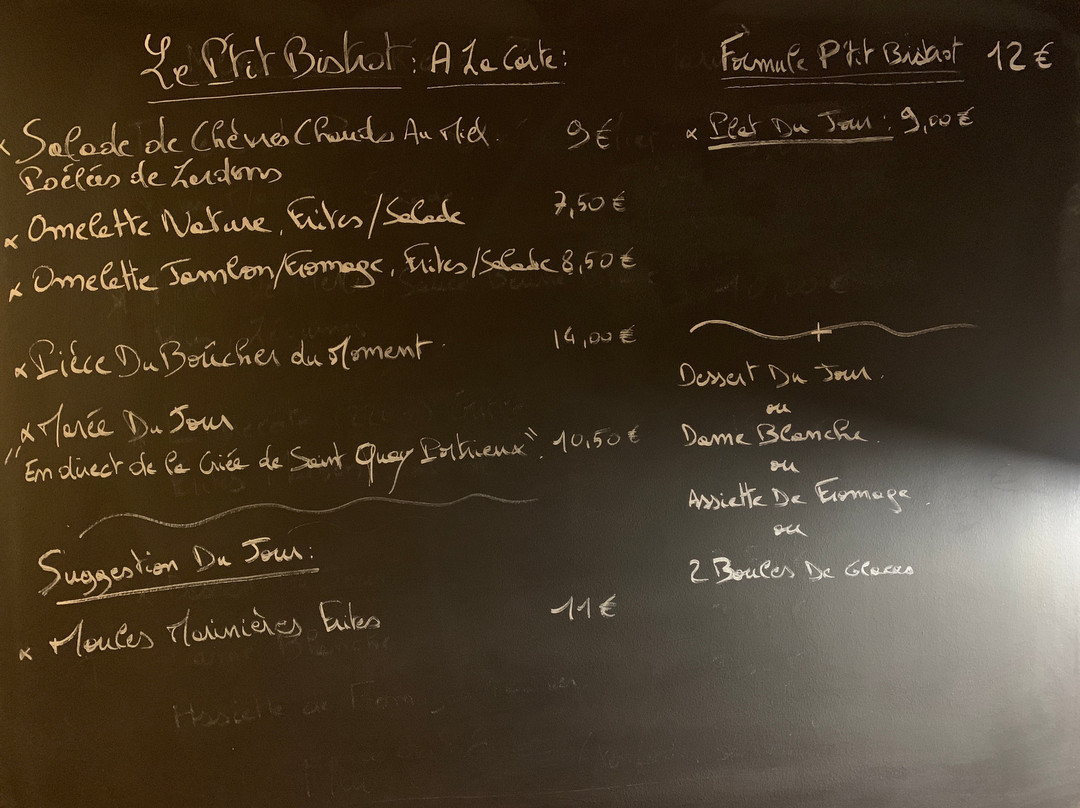 Le P'tit Bistrot : A La Carte :
x Salade de Chèvres Chauds Au Miel. 9€
Poêlées de Lardons
x Omelette Nature, Frites/Salade 7,50€
x Omelette Jambon/Fromage, Frites/Salade 8,50€
x Pièce Du Boûcher du Moment 14,00€
x Marée Du Jour
"En direct de la Criée de Saint Quay Portrieux". 10,50€
Suggestion Du Jour :
x Moules Marinières Frites 11€
Formule P'tit Bistrot 12€
x Plat Du Jour : 9,00€
Dessert Du Jour.
ou
Dame Blanche.
ou
Assiette De Fromage.
ou
2 Boules De Glaces